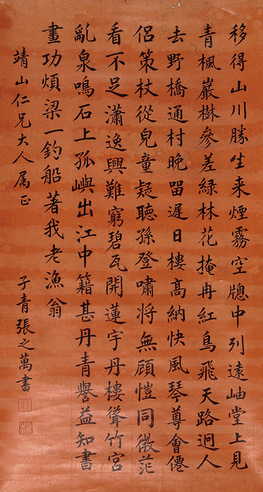 移得山川勝生来煙霧空牕中列遠岫堂上見
青楓巖樹參差綠林花掩冉紅鳥飛天路迥人
去野橋通村晚留遲日樓高納快風琴尊會僊
侶策杖從兒童疑聽孫登嘯將無顧愷同微茫
看不足瀟逸興難窮碧瓦開蓮宇丹樓聳竹宮
亂泉鳴石上孤嶼出江中籍甚丹青譽益知書
畫功煩梁一釣船著我老漁翁
靖山仁兄大人属正
子青張之萬書